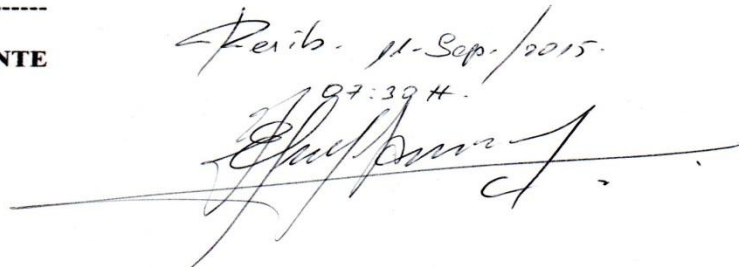 -------
NTE
Recib. 11-Sep./2015.
07:30 H.